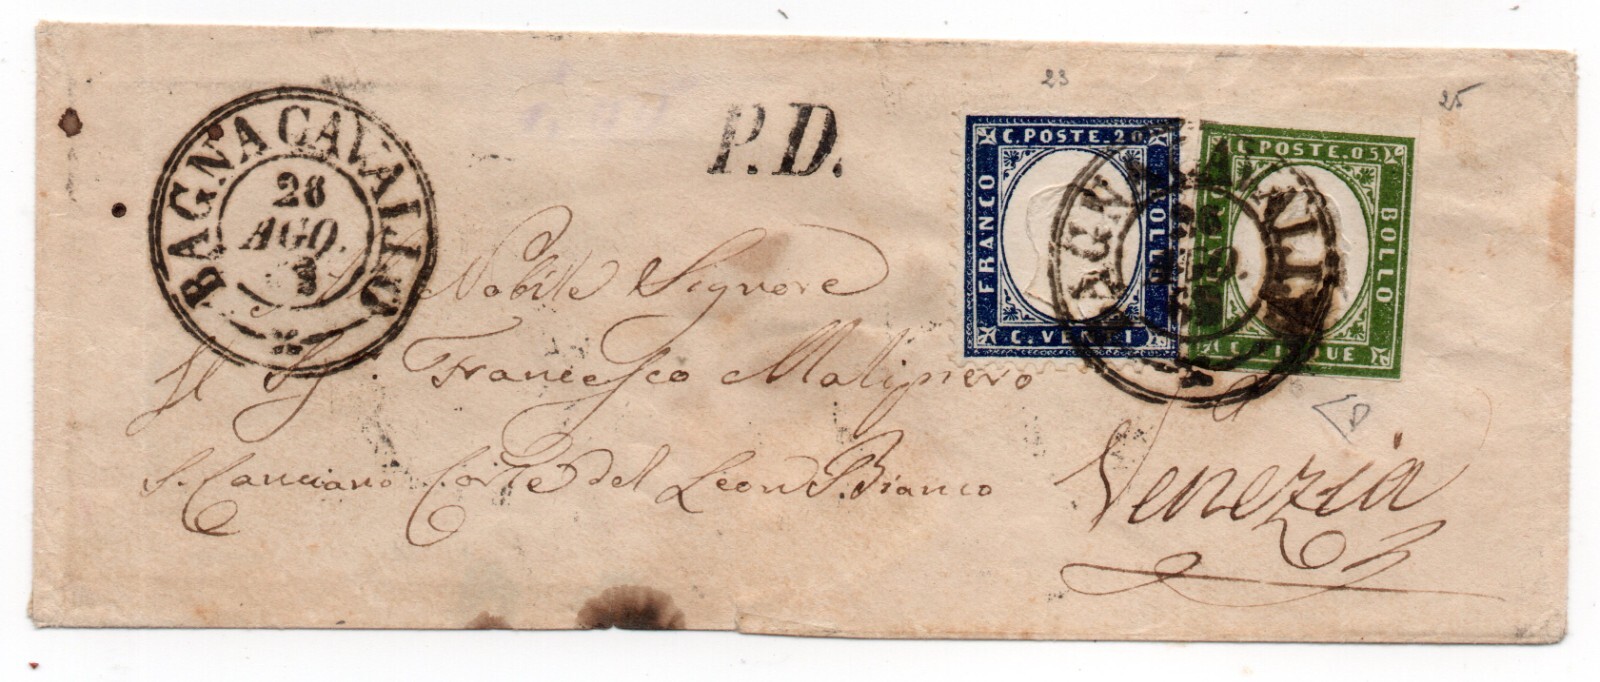 23
25
P.D.
BAGNACAVALLO
26
AGO.
C. POSTE. 20
FRANCO
BOLLO
C. VENTI
C. POSTE. 05
BOLLO
C. CINQUE
BAGNACAVALLO
Nobile Signore
Il Sig. Francesco Malipiero
S. Canciano Corte del Leon Bianco
Venezia